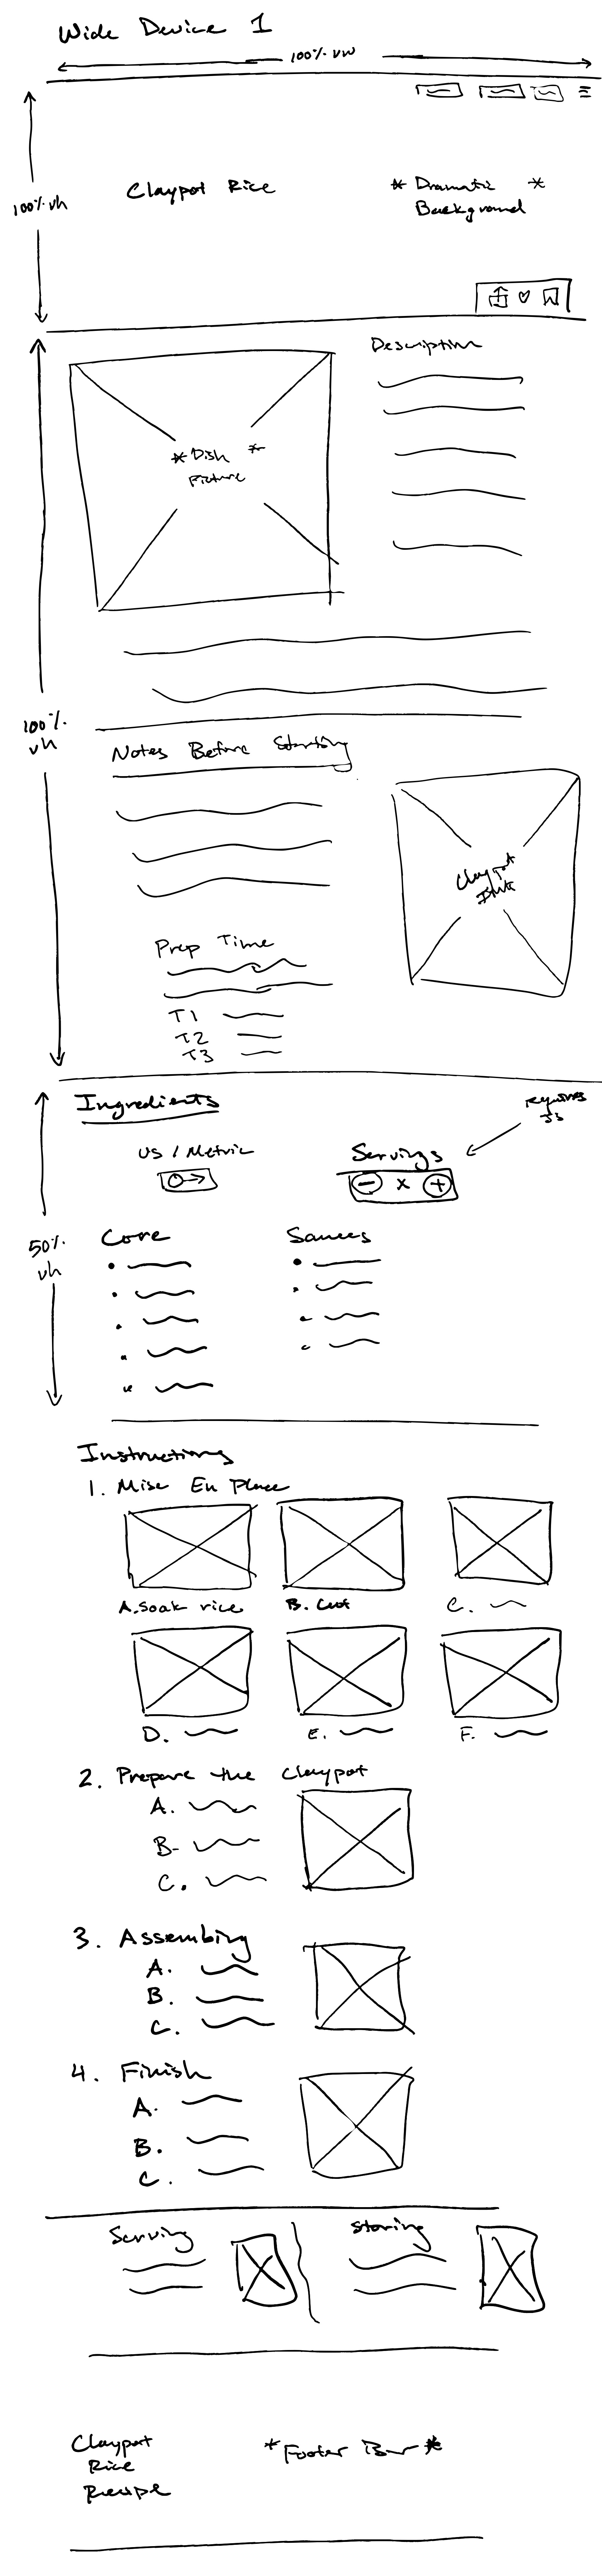 Wide Device 1
100% vw
100% vh
Claypot Rice
* Dramatic *
Background
Description
* Dish *
Picture
100%
vh
Notes Before Starting
Claypot
Prep Time
T1
T2
T3
Ingredients
requires
JS
US / Metric
Servings
- x +
50%
vh
Core
Sauces
Instructions
1. Mise En Place
A. Soak rice
B. Cut
C.
D.
E.
F.
2. Prepare the Claypot
A.
B.
C.
3. Assembing
A.
B.
C.
4. Finish
A.
B.
C.
Serving
Storing
Claypot
Rice
Recipe
* Footer Bar *